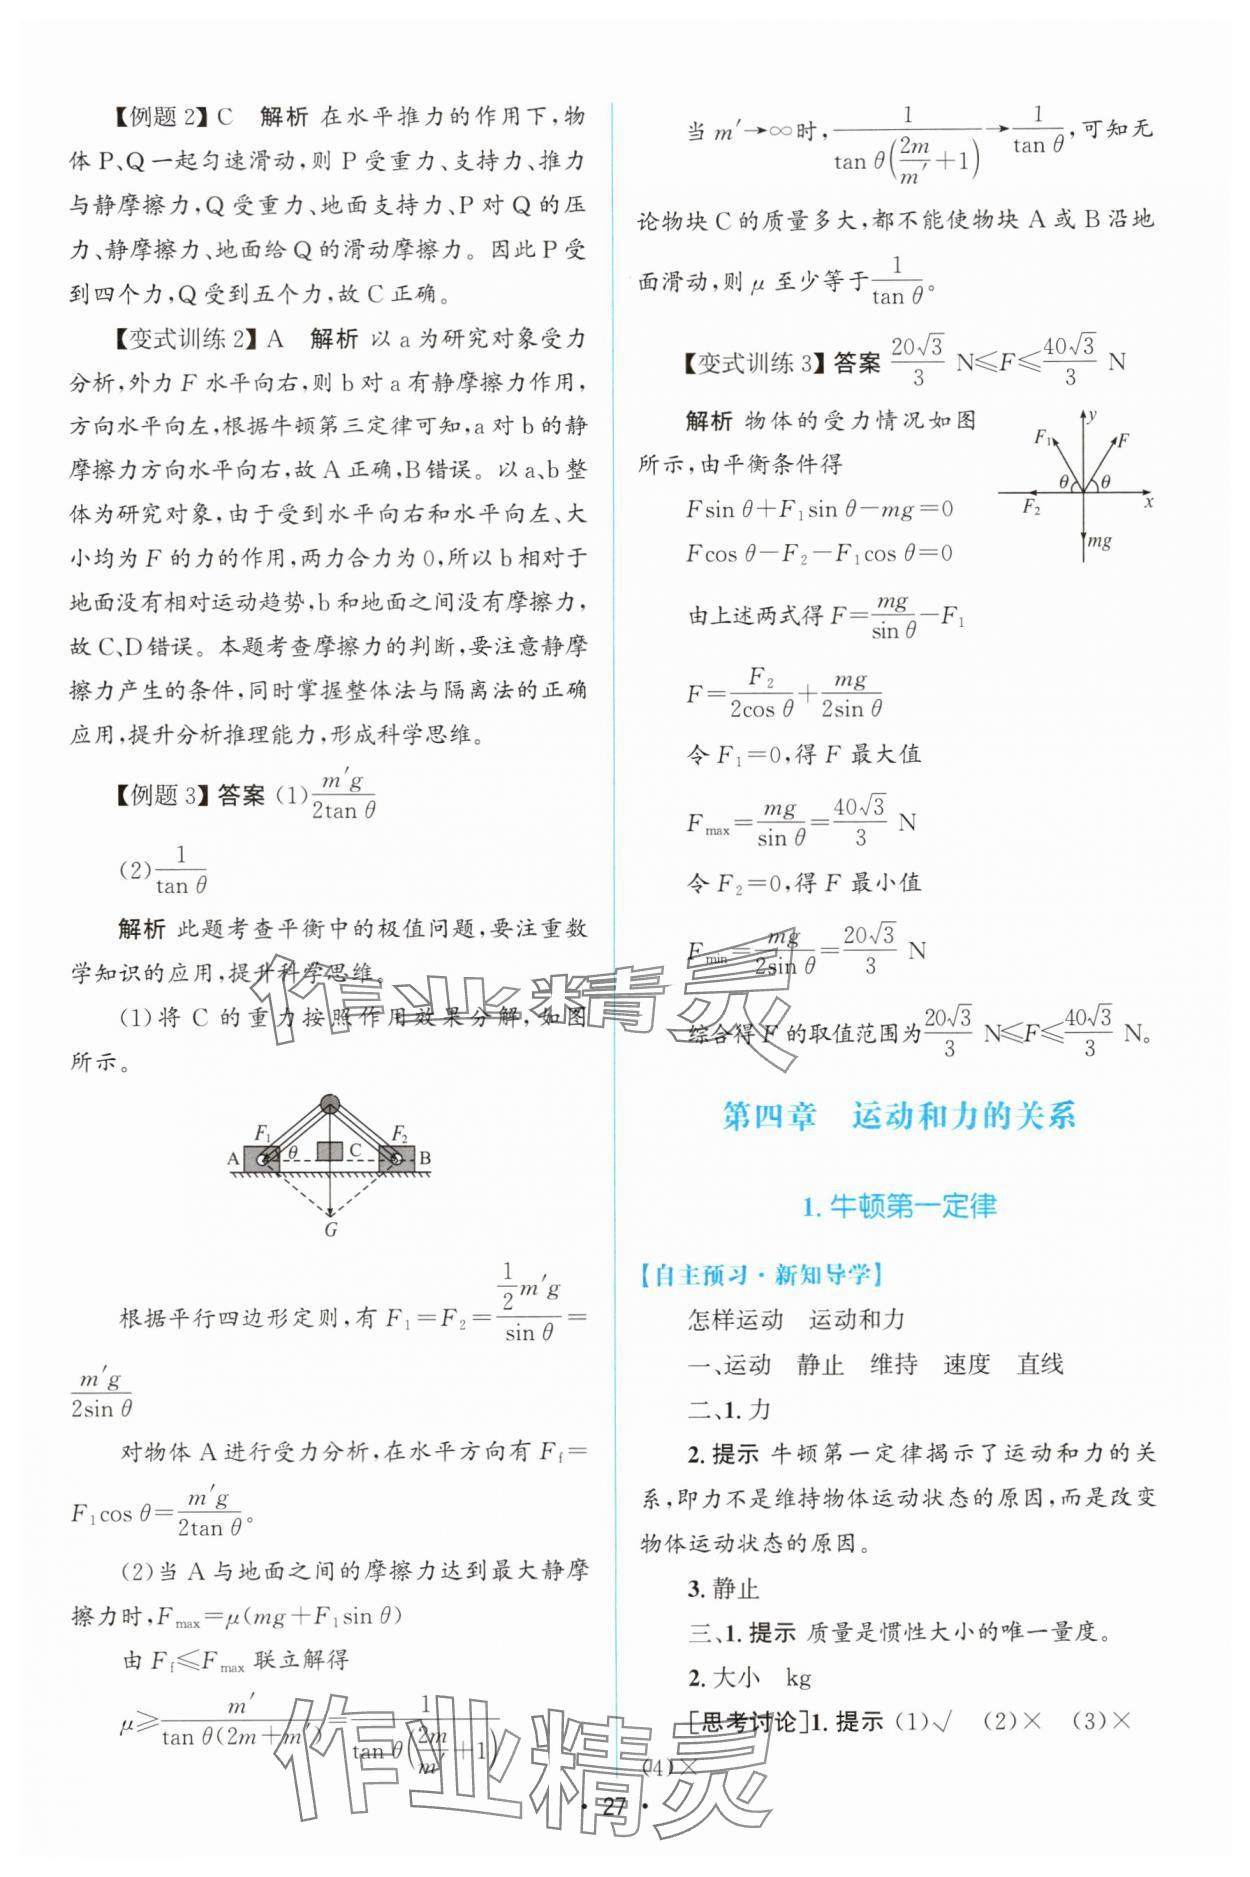 【例题2】C 解析 在水平推力的作用下,物
体P、Q一起匀速滑动,则P受重力、支持力、推力
与静摩擦力,Q受重力、地面支持力、P对Q的压
力、静摩擦力、地面给Q的滑动摩擦力。因此P受
到四个力,Q受到五个力,故C正确。
【变式训练2】A 解析 以a为研究对象受力
分析,外力F水平向右,则b对a有静摩擦力作用,
方向水平向左,根据牛顿第三定律可知,a对b的静
摩擦力方向水平向右,故A正确,B错误。以a、b整
体为研究对象,由于受到水平向右和水平向左、大
小均为F的力的作用,两力合力为0,所以b相对于
地面没有相对运动趋势,b和地面之间没有摩擦力,
故C、D错误。本题考查摩擦力的判断,要注意静摩
擦力产生的条件,同时掌握整体法与隔离法的正确
应用,提升分析推理能力,形成科学思维。
【例题3】答案 (1) m′g/(2tan θ)
(2) 1/tan θ
解析 此题考查平衡中的极值问题,要注重数
学知识的应用,提升科学思维。
(1)将C的重力按照作用效果分解,如图
所示。
F₁ F₂
A θ C B
G
根据平行四边形定则,有F₁=F₂=(½m′g)/(sin θ)=
m′g/(2sin θ)
对物体A进行受力分析,在水平方向有F_f=
F₁cos θ=m′g/(2tan θ)。
(2)当A与地面之间的摩擦力达到最大静摩
擦力时,F_max=μ(mg+F₁sin θ)
由F_f≤F_max联立解得
μ≥m′/(tan θ(2m+m′))=1/(tan θ(2m/m′+1))
当m′→∞时,1/(tan θ(2m/m′+1))→1/tan θ,可知无
论物块C的质量多大,都不能使物块A或B沿地
面滑动,则μ至少等于1/tan θ。
【变式训练3】答案 20√3/3 N≤F≤40√3/3 N
解析 物体的受力情况如图
所示,由平衡条件得
y
F₁ F
θ θ
F₂ x
mg
Fsin θ+F₁sin θ−mg=0
Fcos θ−F₂−F₁cos θ=0
由上述两式得F=mg/sin θ−F₁
F=F₂/(2cos θ)+mg/(2sin θ)
令F₁=0,得F最大值
F_max=mg/sin θ=40√3/3 N
令F₂=0,得F最小值
F_min=mg/(2sin θ)=20√3/3 N
综合得F的取值范围为20√3/3 N≤F≤40√3/3 N。
第四章 运动和力的关系
1. 牛顿第一定律
【自主预习·新知导学】
怎样运动 运动和力
一、运动 静止 维持 速度 直线
二、1. 力
2. 提示 牛顿第一定律揭示了运动和力的关
系,即力不是维持物体运动状态的原因,而是改变
物体运动状态的原因。
3. 静止
三、1. 提示 质量是惯性大小的唯一量度。
2. 大小 kg
[思考讨论]1. 提示 (1)√ (2)× (3)×
(4)×
· 27 ·
作业精灵
作业精灵